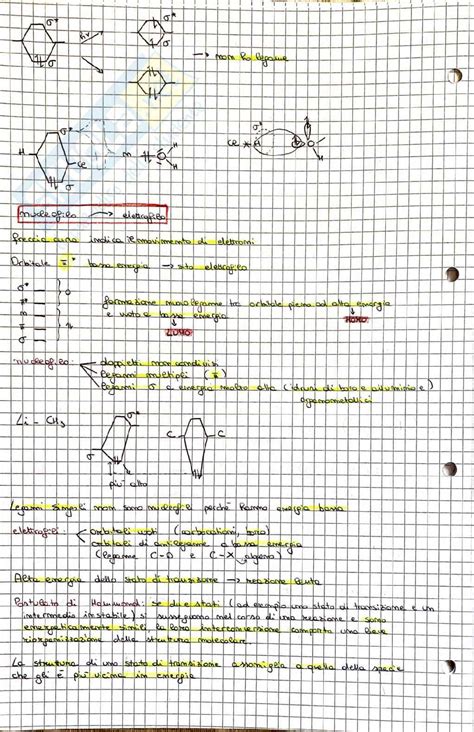 σ* hν σ*
σ σ
→ non fa legame
σ* σ*
H Cl n H Cl H
σ H
nucleofilo → elettrofilo
freccia curva indica il movimento di elettroni
Orbitale π* bassa energia → sito elettrofilo
σ*
π*
n
π
σ
formazione nuovo legame tra orbitale pieno ad alta energia
e vuoto a bassa energia HOMO
LUMO
nucleofilo: doppietti non condivisi
legami multipli (π)
legami σ a energia molto alta (idruri di boro e alluminio e
organometallici)
Li - CH3 σ* C C
σ
più alto
Legami singoli non sono nucleofili perché hanno energia bassa
elettrofili: orbitali vuoti (carbocationi, boro)
orbitali di antilegame a bassa energia
(legame C-O e C-X alogeno)
Alta energia dello stato di transizione → reazione lenta
Postulato di Hammond: se due stati (ad esempio uno stato di transizione e un
intermedio instabile) si susseguono nel corso di una reazione e sono
energeticamente simili, la loro interconversione comporta una lieve
riorganizzazione della struttura molecolare.
La struttura di uno stato di transizione assomiglia a quella della specie
che gli è più vicina in energia